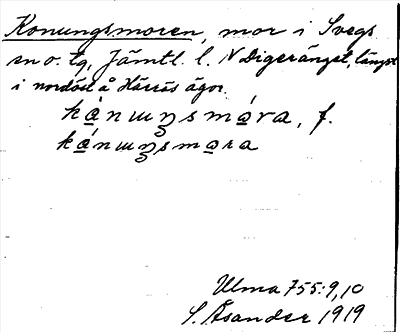 Konungsmoren, mor i Svegs
sn o. tg, Jämtl. l. N Digeränget, längst
i nordöst å Härrås ägor.
ka̱̒nɯŋsmára, f.
ká̱nɯŋsmara
Ulma 755:9,10
S. Åsander 1919